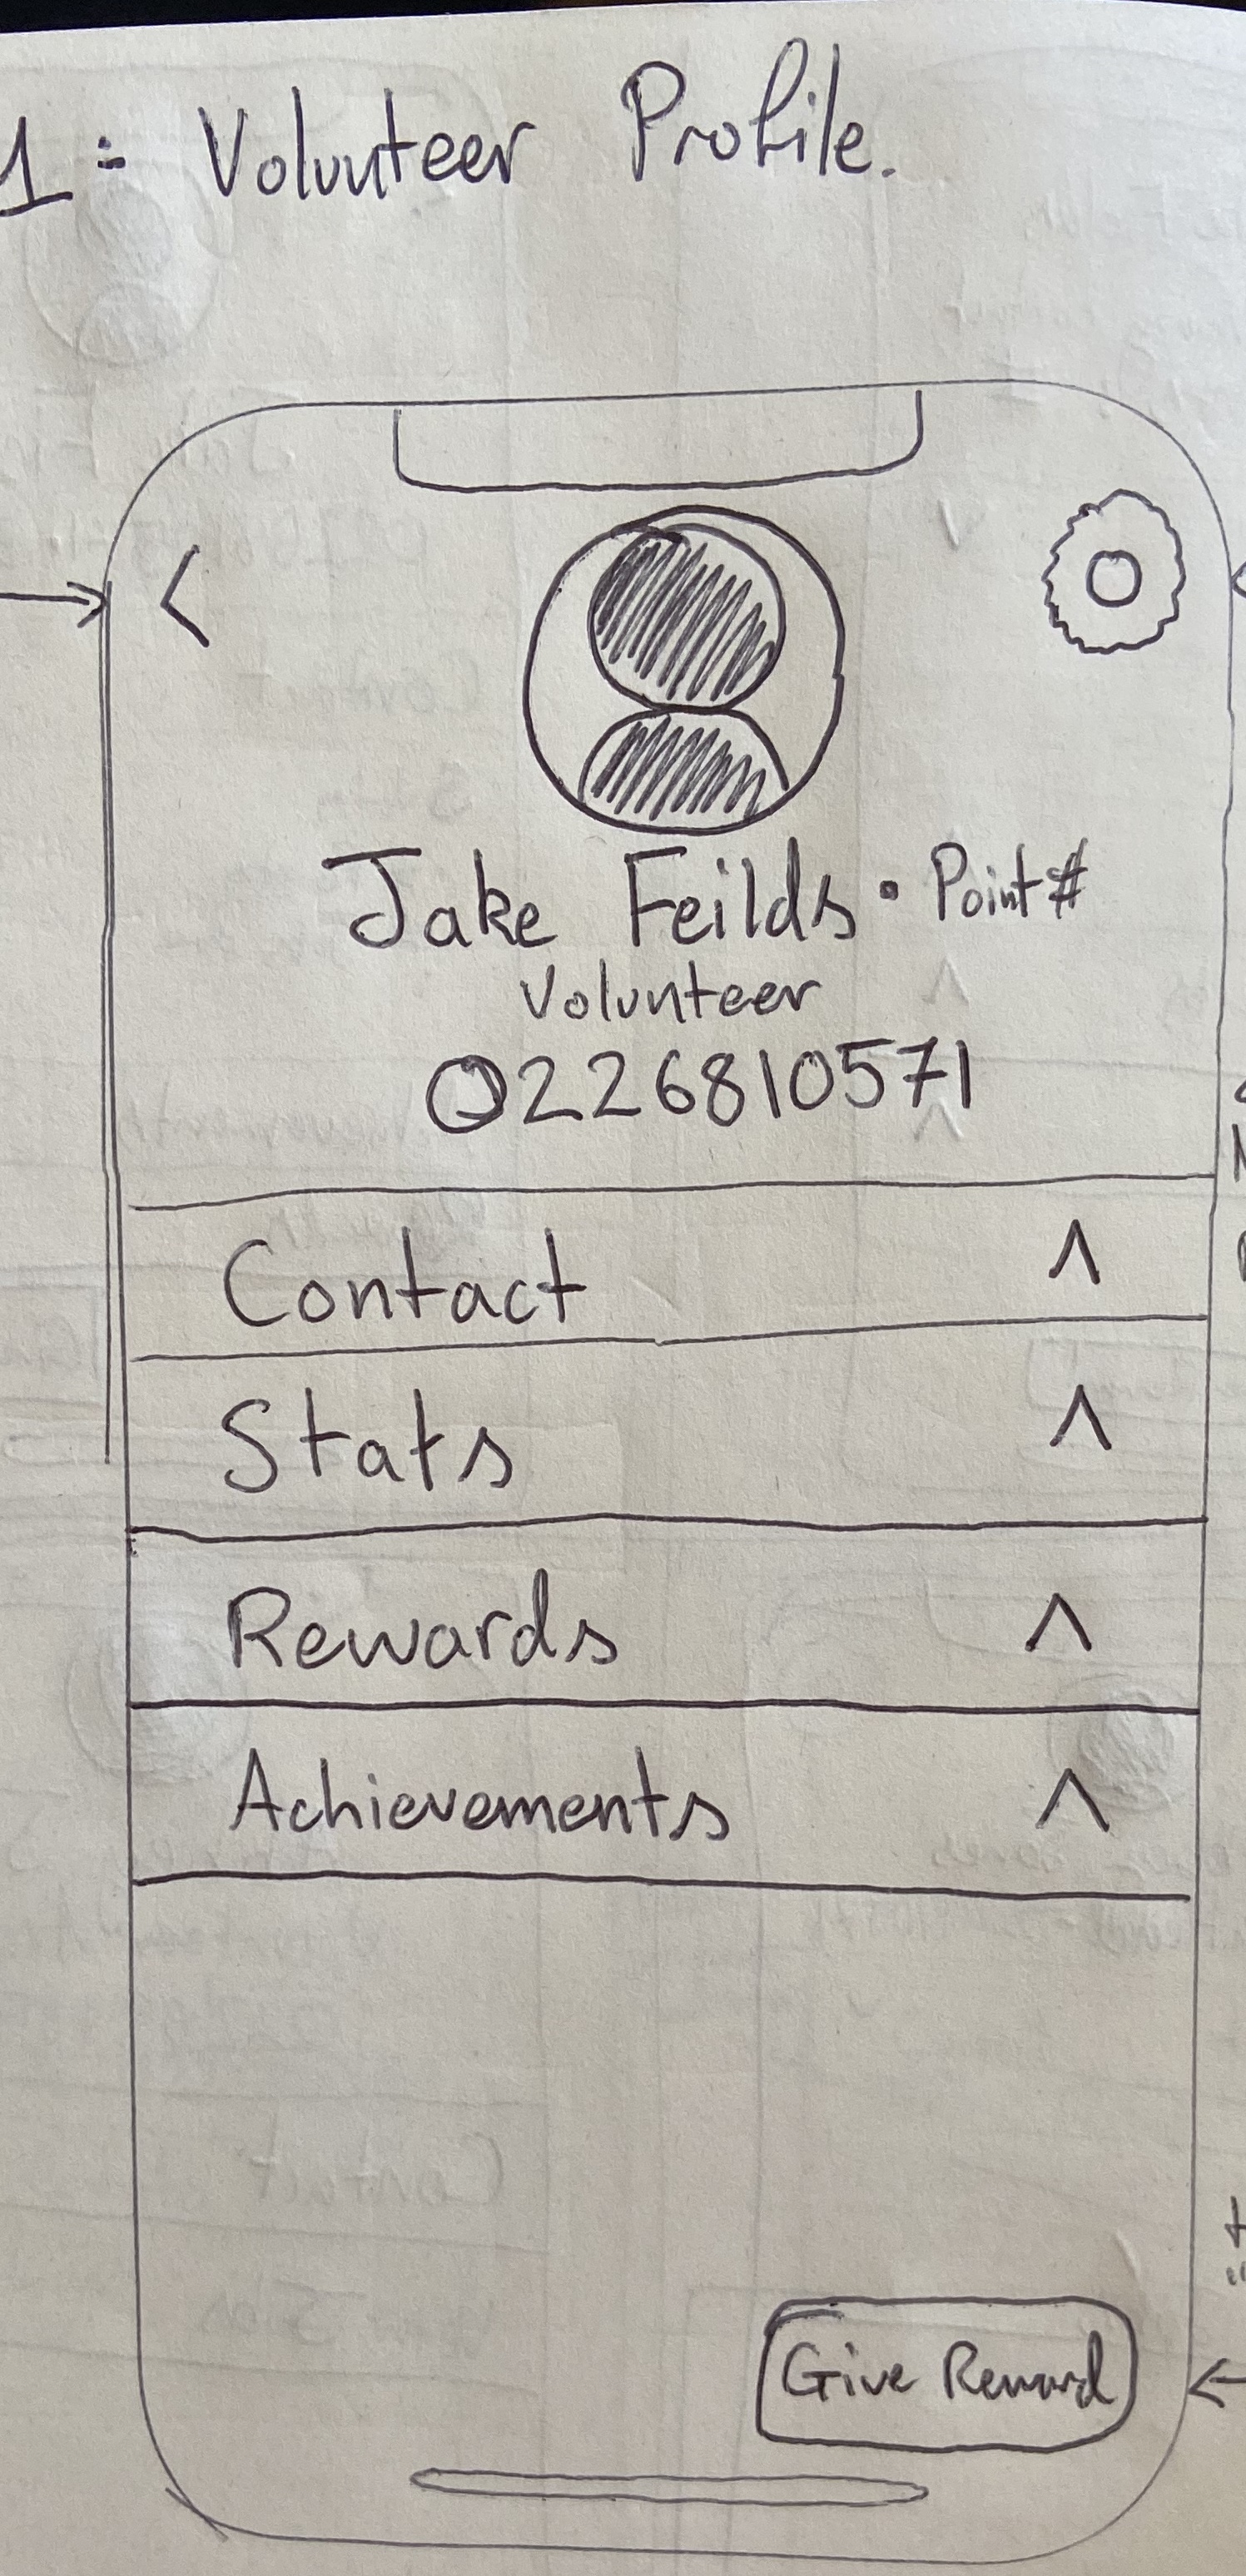 1: Volunteer Profile.
<
Jake Feilds • Point#
Volunteer
0226810571
Contact ^
Stats ^
Rewards ^
Achievements ^
Give Reward